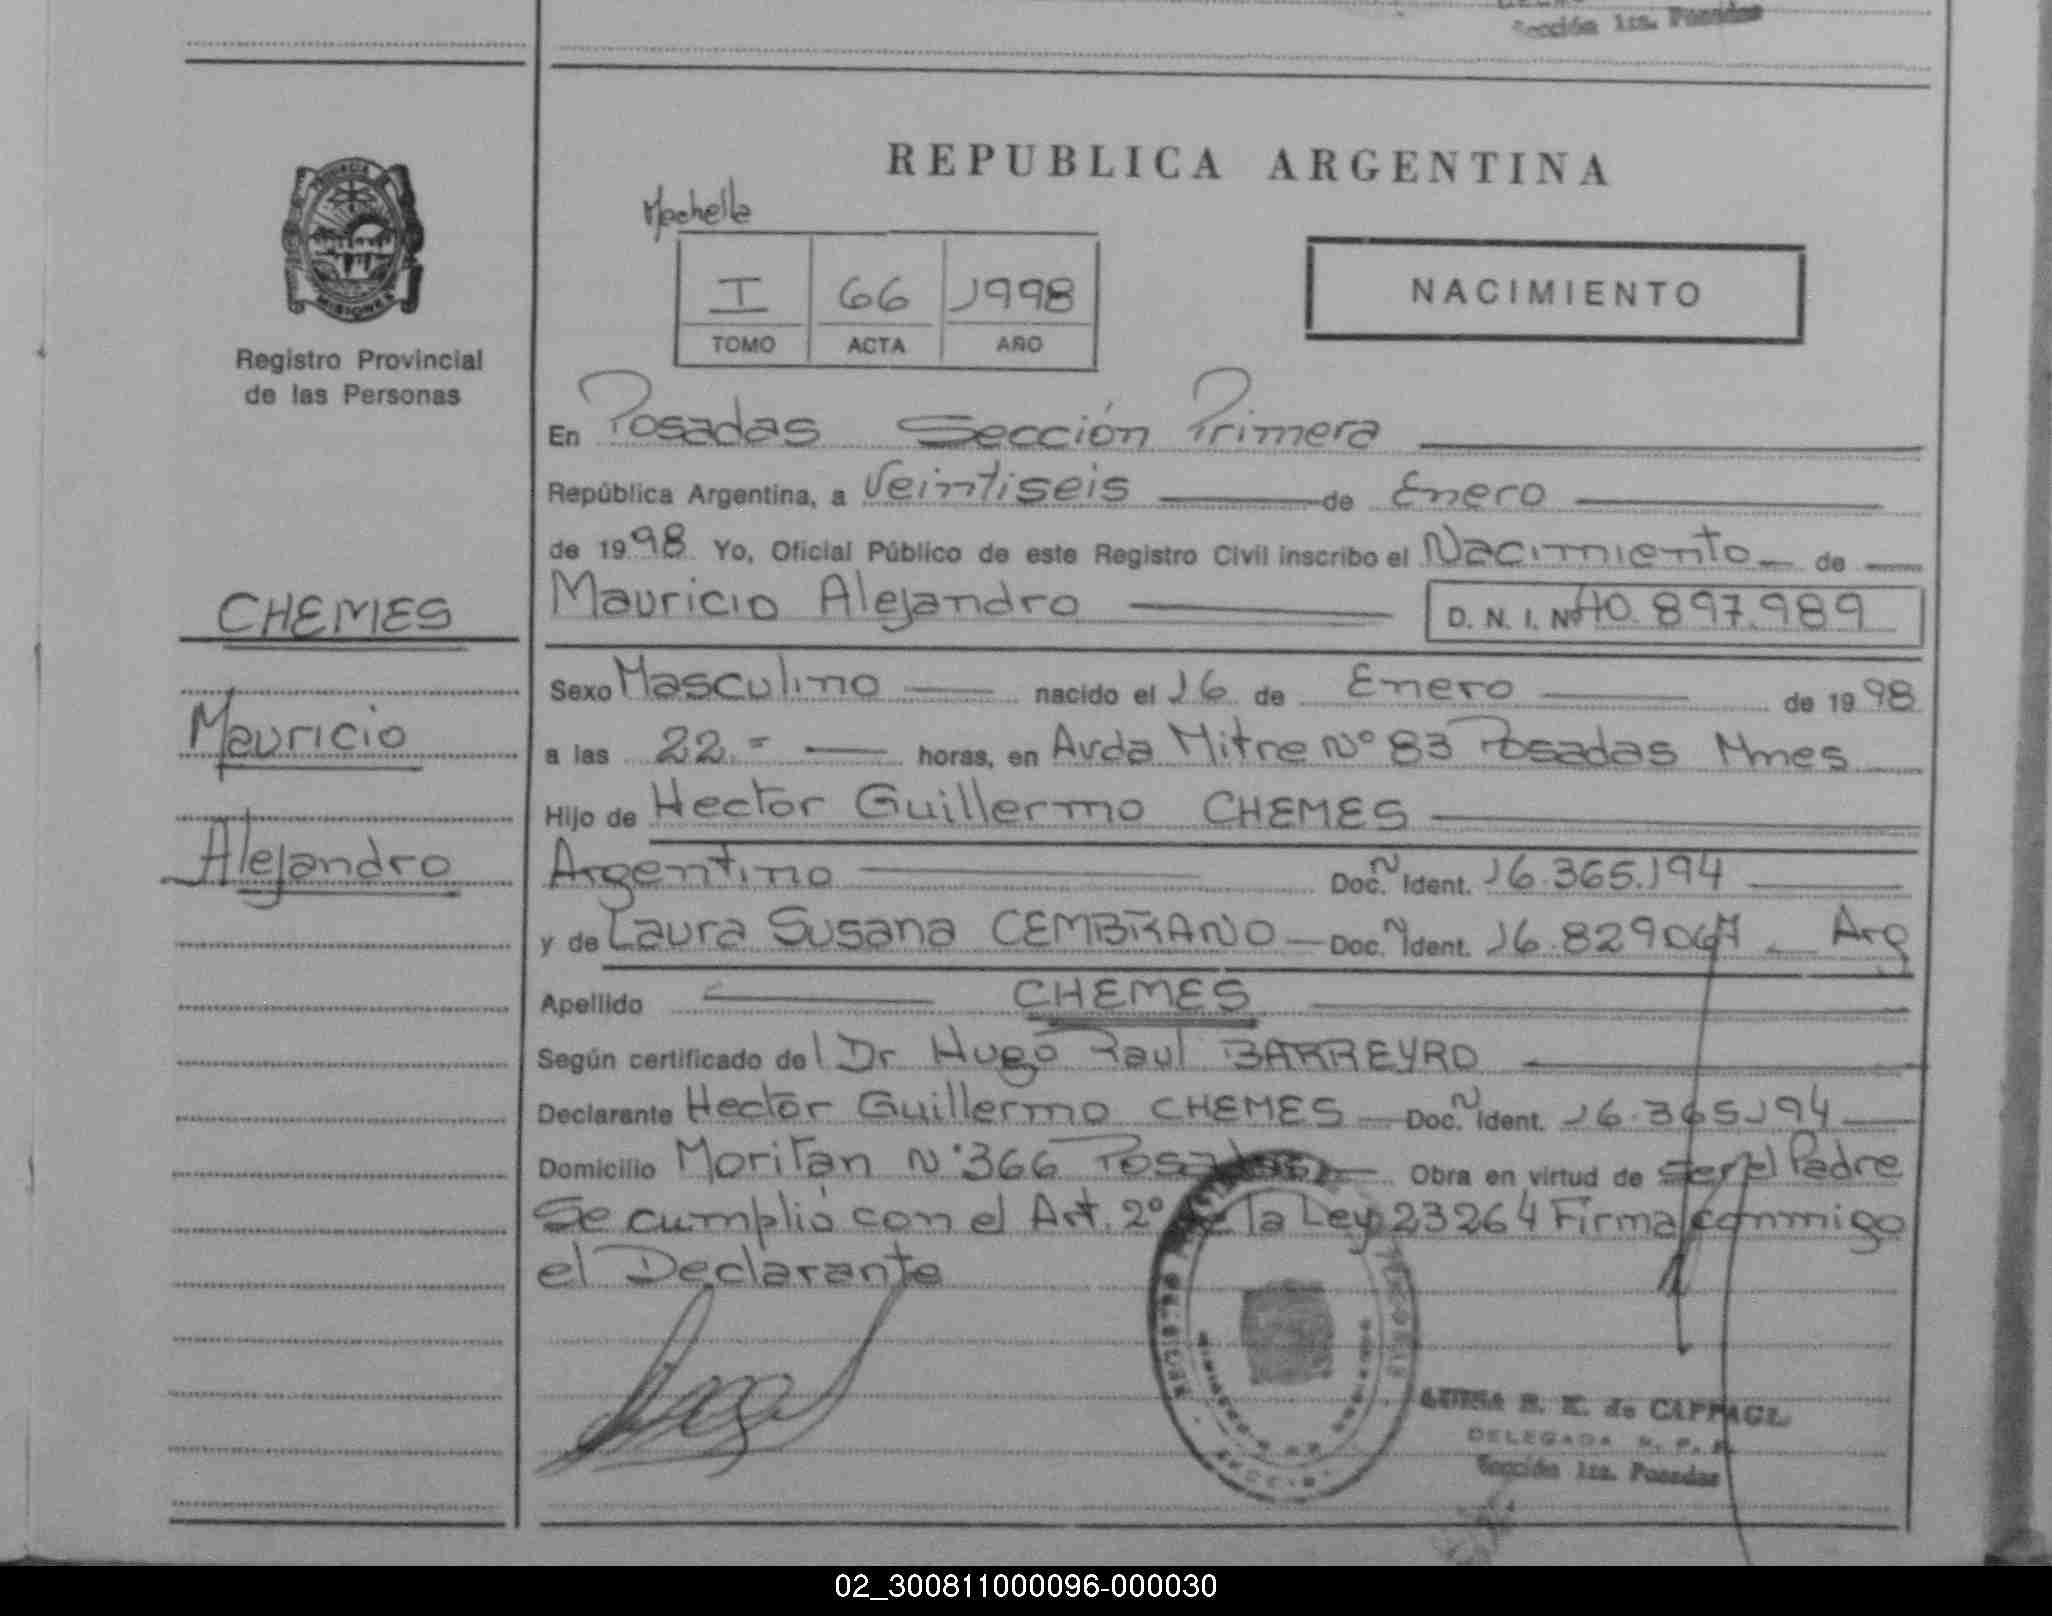 Sección 1ra. Posadas
REPUBLICA ARGENTINA
I 66 1998
TOMO ACTA AÑO
NACIMIENTO
PROVINCIA DE
MISIONES
Registro Provincial
de las Personas
CHEMES
Mauricio
Alejandro
En Posadas Sección Primera
República Argentina, a Veintiseis de Enero
de 1998 Yo, Oficial Público de este Registro Civil inscribo el Nacimiento de
Mauricio Alejandro D. N. I. Nº 40.897.989
Sexo Masculino nacido el 16 de Enero de 1998
a las 22.= horas, en Avda Mitre Nº 83 Posadas Mnes
Hijo de Hector Guillermo CHEMES
Argentino Doc. Ident. 16.365.194
y de Laura Susana CEMBRANO Doc. Ident. 16.829067 Arg
Apellido CHEMES
Según certificado del Dr. Hugo Raul BARREYRO
Declarante Hector Guillermo CHEMES Doc. Ident. 16.365.194
Domicilio Moritan Nº 366 Posadas Obra en virtud de ser el Padre
Se cumplió con el Art. 2º de la Ley 23264 Firma conmigo
el Declarante
B. K. de
DELEGADA R. P. P.
Sección 1ra. Posadas
02_300811000096-000030